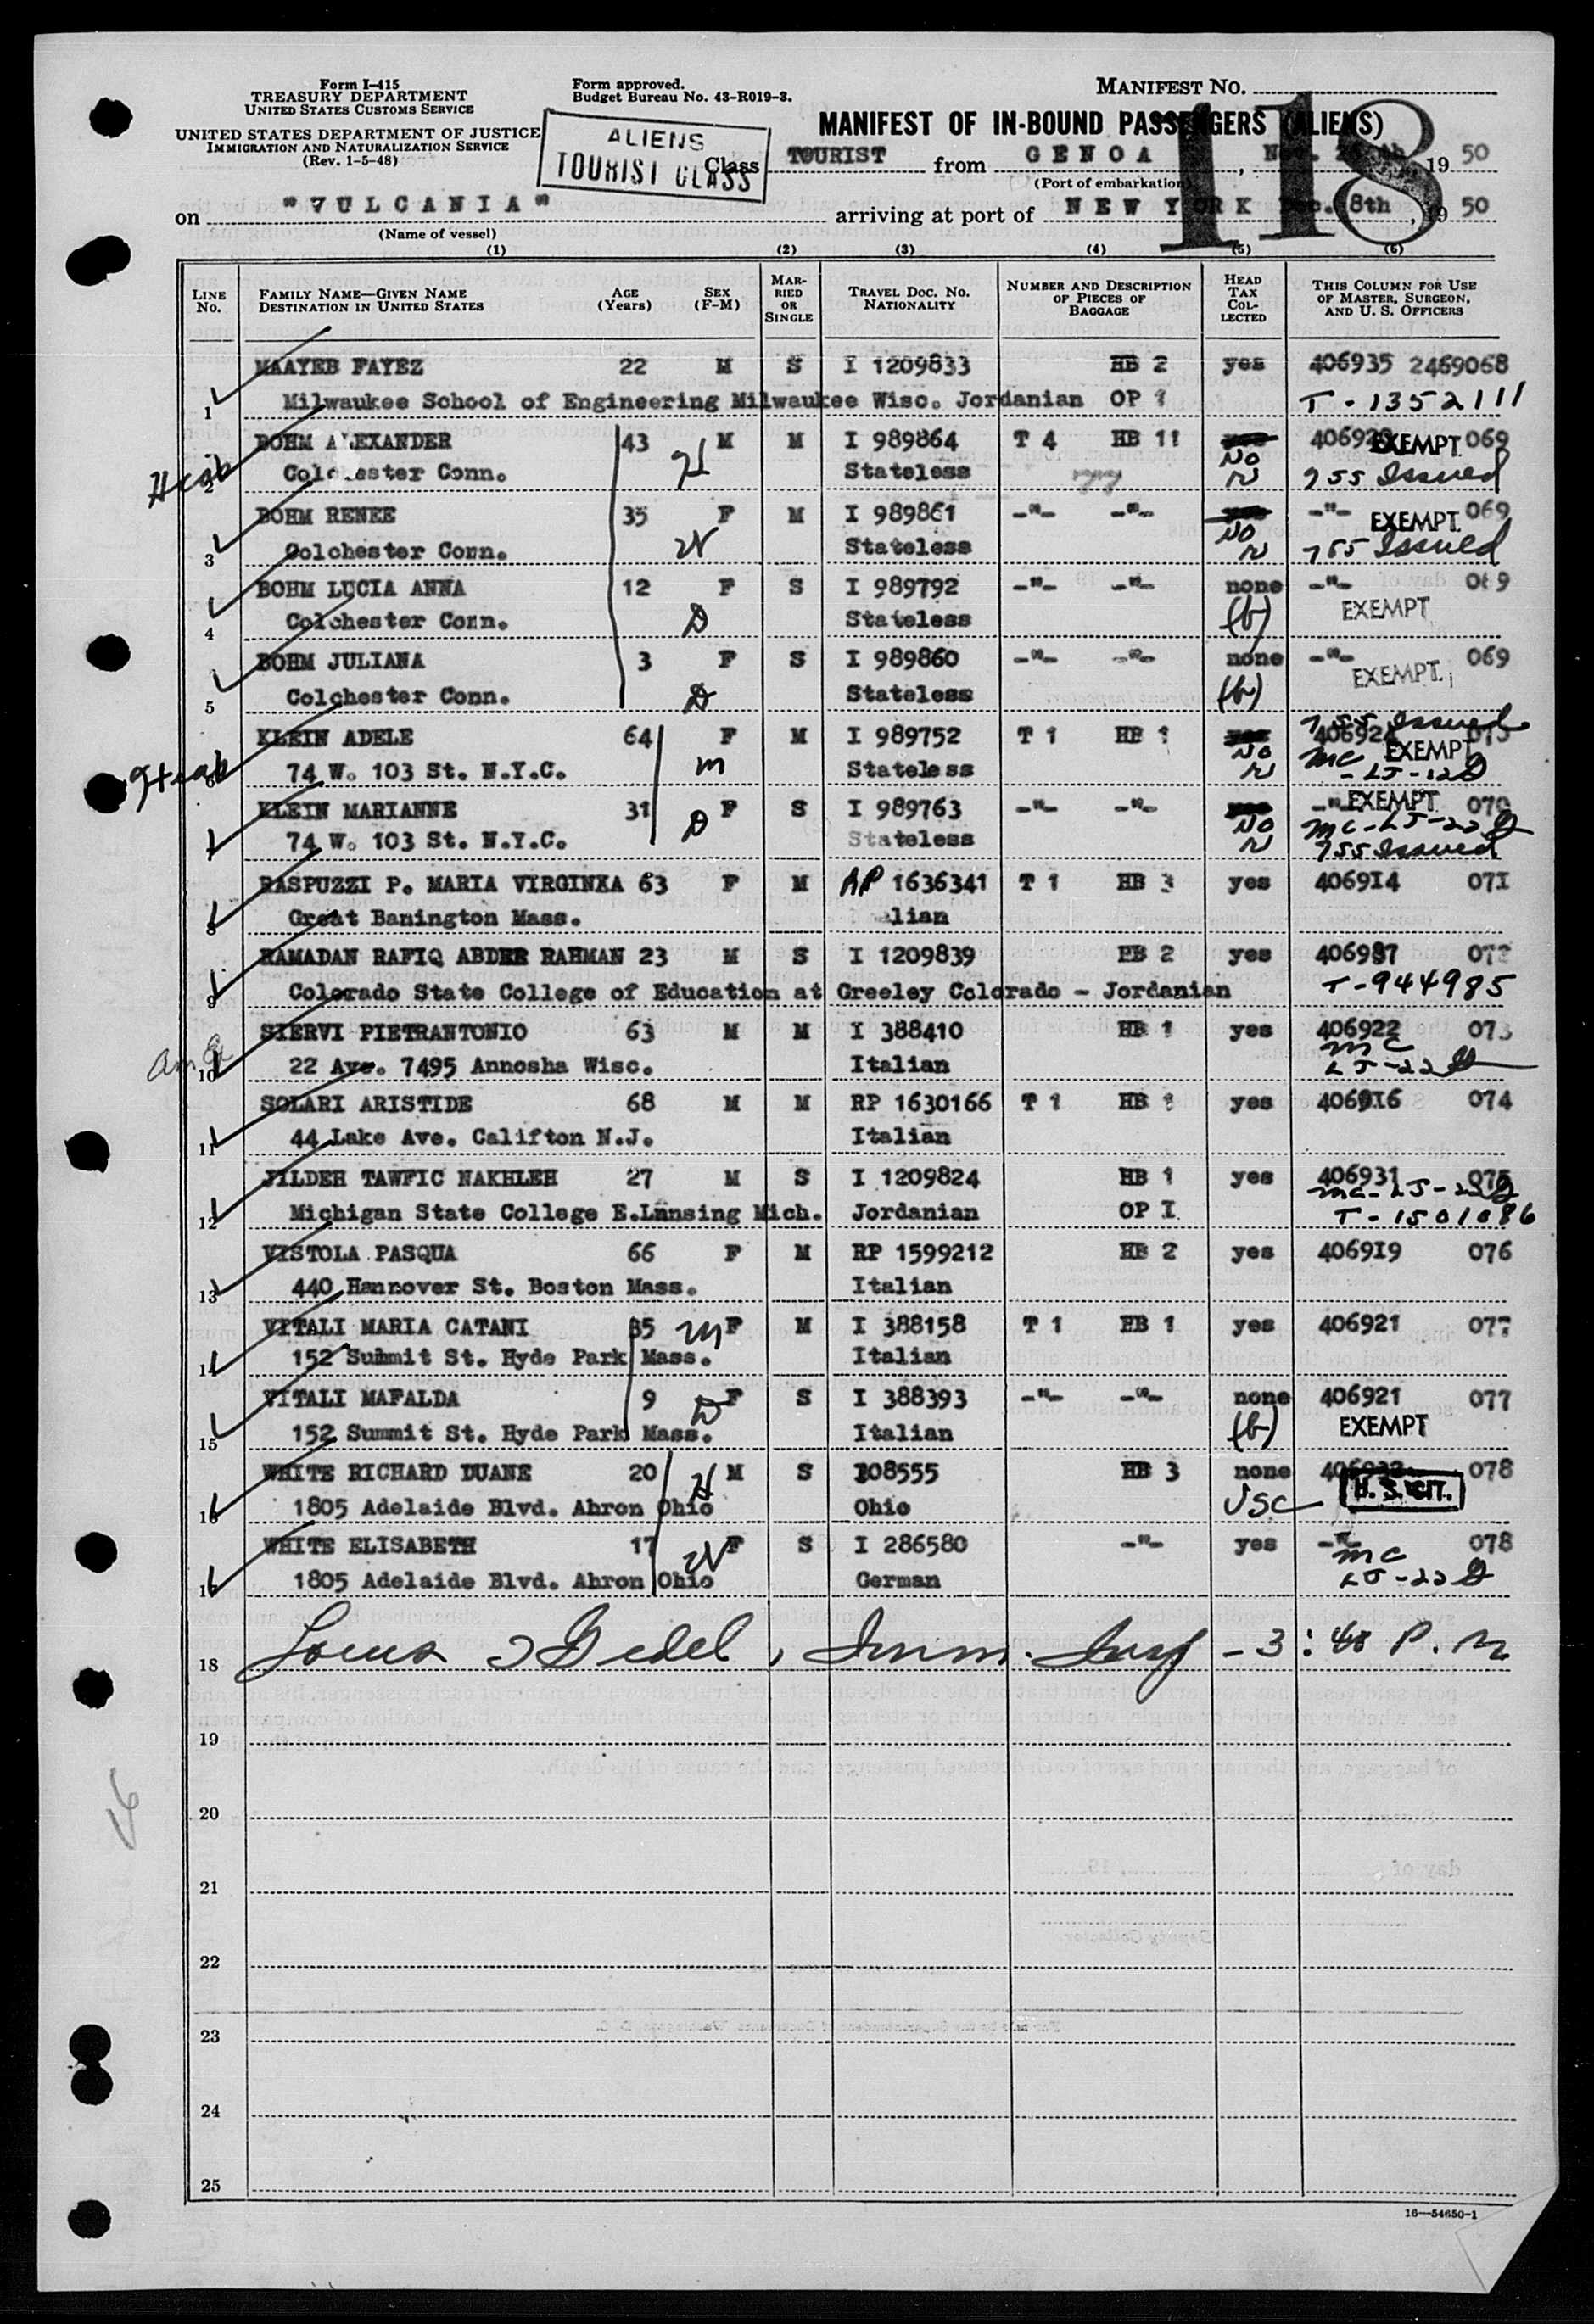 Form I-415
TREASURY DEPARTMENT
UNITED STATES CUSTOMS SERVICE
UNITED STATES DEPARTMENT OF JUSTICE
IMMIGRATION AND NATURALIZATION SERVICE
(Rev. 1-5-48)
Form approved.
Budget Bureau No. 43-R019-3.
MANIFEST NO.
118
ALIENS
TOURIST CLASS
MANIFEST OF IN-BOUND PASSENGERS (ALIENS)
Class TOURIST from GENOA, 19 50
(Port of embarkation)
on "VULCANIA" arriving at port of NEW YORK Dec. 8th, 19 50
(Name of vessel)
(1) (2) (3) (4) (5) (6)
LINE No. FAMILY NAME—GIVEN NAME DESTINATION IN UNITED STATES AGE (Years) SEX (F-M) MARRIED OR SINGLE TRAVEL DOC. NO. NATIONALITY NUMBER AND DESCRIPTION OF PIECES OF BAGGAGE HEAD TAX COLLECTED THIS COLUMN FOR USE OF MASTER, SURGEON, AND U. S. OFFICERS
MAAYEB FAYEZ 22 M S I 1209833 HB 2 yes 406935 2469068
1 Milwaukee School of Engineering Milwaukee Wisc. Jordanian OP 1 T-1352111
BOHM ALEXANDER 43 M M I 989864 T 4 HB 11 No EXEMPT 069
2 Colchester Conn. H Stateless 755 Issued
BOHM RENEE 35 F M I 989861 -"- -"- No -"- EXEMPT 069
3 Colchester Conn. W Stateless 755 Issued
BOHM LUCIA ANNA 12 F S I 989792 -"- -"- none -"- 069
4 Colchester Conn. D Stateless (b) EXEMPT
BOHM JULIANA 3 F S I 989860 -"- -"- none -"- 069
5 Colchester Conn. D Stateless (b) EXEMPT
755 Issued
KLEIN ADELE 64 F M I 989752 T 1 HB 1 No EXEMPT
6 74 W. 103 St. N.Y.C. m Stateless
KLEIN MARIANNE 31 F S I 989763 -"- -"- No -"- EXEMPT 070
7 74 W. 103 St. N.Y.C. D Stateless 755 Issued
RASPUZZI P. MARIA VIRGINXA 63 F M RP 1636341 T 1 HB 3 yes 406914 071
8 Great Banington Mass. alian
RAMADAN RAFIQ ABDER RAHMAN 23 M S I 1209839 HB 2 yes 406937 072
9 Colorado State College of Education at Greeley Colorado - Jordanian T-944985
SIERVI PIETRANTONIO 63 M M I 388410 HB 1 yes 406922 073
10 22 Ave. 7495 Annosha Wisc. Italian mc
SOLARI ARISTIDE 68 M M RP 1630166 T 1 HB 1 yes 406916 074
11 44 Lake Ave. Califton N.J. Italian
JILDEH TAWFIC NAKHLEH 27 M S I 1209824 HB 1 yes 406931 075
12 Michigan State College E.Lansing Mich. Jordanian OP I T-1501086
VISTOLA PASQUA 66 F M RP 1599212 HB 2 yes 406919 076
13 440 Hannover St. Boston Mass. Italian
VITALI MARIA CATANI 35 m F M I 388158 T 1 HB 1 yes 406921 077
14 152 Summit St. Hyde Park Mass. Italian
VITALI MAFALDA 9 D F S I 388393 -"- -"- none 406921 077
15 152 Summit St. Hyde Park Mass. Italian (b) EXEMPT
WHITE RICHARD DUANE 20 H M S 108555 HB 3 none 078
16 1805 Adelaide Blvd. Ahron Ohio Ohio USC U. S. CIT.
WHITE ELISABETH 17 W F S I 286580 -"- yes -"- 078
1805 Adelaide Blvd. Ahron Ohio German mc
18 Imm. Insp - 3:40 P.M
19
20
21
22
23
24
25
16
16—54650-1